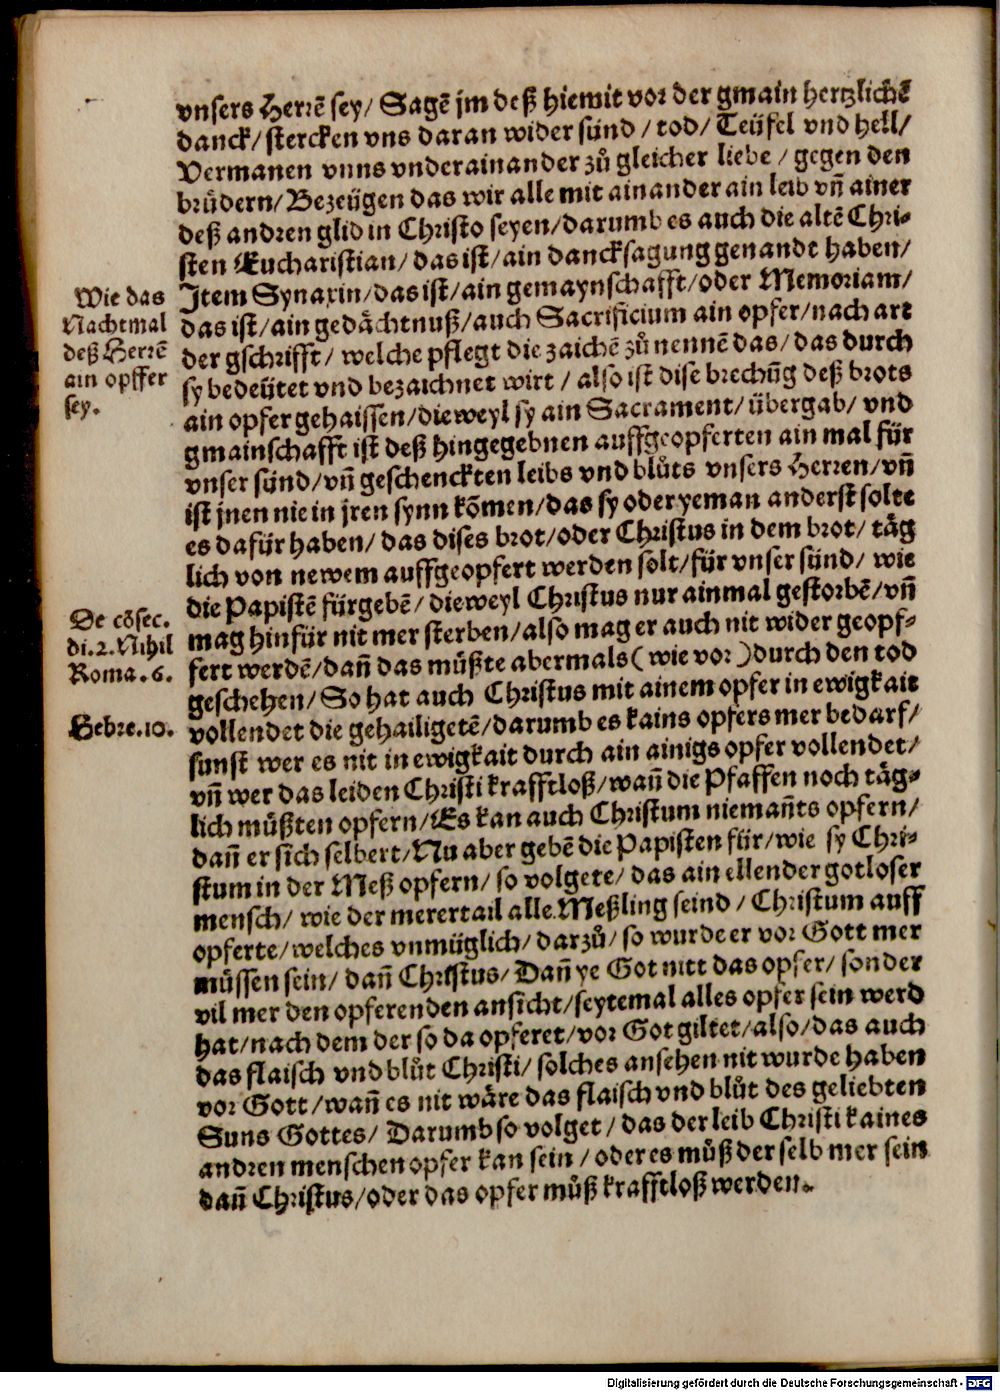 vnsers Herrē sey/ Sagē jm deß hiemit vor der gmain hertzlichē
danck/ stercken vns daran wider sünd/ tod/ Teüfel vnd hell/
Vermanen vnns vnderainander zů gleicher liebe/ gegen den
brůdern/ Bezeügen das wir alle mit ainander ain leib vñ ainer
deß andren glid in Christo seyen/ darumb es auch die altē Chri-
sten Eucharistian/ das ist/ ain dancksagung genandt haben/
Item Synaxin/ das ist/ ain gemaynschafft/ oder Memoriam/
das ist/ ain gedächtnuß/ auch Sacrificium ain opfer/ nach art
der gschrifft/ welche pflegt die zaichē zů nennē das/ das durch
sy bedeütet vnd bezaichnet wirt/ also ist dise brechũg deß brots
ain opfer gehaissen/ dieweyl sy ain Sacrament/ übergab/ vnd
gmainschafft ist deß hingegebnen auffgeopferten ain mal für
vnser sünd/ vñ geschenckten leibs vnd blůts vnsers Herren/ vñ
ist jnen nie in jren synn kõmen/ das sy oder yeman anderst solte
es dafür haben/ das dises brot/ oder Christus in dem brot/ täg
lich von newem auffgeopfert werden solt/ für vnser sünd/ wie
die Papistē fürgebē/ dieweyl Christus nur ainmal gestorbē/ vñ
mag hinfür nit mer sterben/ also mag er auch nit wider geopf-
fert werdē/ dañ das müßte abermals (wie vor) durch den tod
geschehen/ So hat auch Christus mit ainem opfer in ewigkait
vollendet die gehailigetē/ darumb es kains opfers mer bedarf/
sunst wer es nit in ewigkait durch ain ainigs opfer vollendet/
vñ wer das leiden Christi krafftloß/ wañ die Pfaffen noch täg-
lich müßten opfern/ Es kan auch Christum niemañts opfern/
dañ er sich selbert/ Nu aber gebē die Papisten für/ wie sy Chri-
stum in der Meß opfern/ so volgete/ das ain ellender gotloser
mensch/ wie der merertail alle Meßling seind/ Christum auff
opferte/ welches vnmüglich/ darzů/ so wurde er vor Gott mer
müssen sein/ dañ Christus/ Dañ ye Got nitt das opfer/ sonder
vil mer den opferenden ansicht/ seytemal alles opfer sein werd
hat/ nach dem der so da opferet/ vor Got giltet/ also/ das auch
das flaisch vnd blůt Christi/ solches ansehen nit wurde haben
vor Gott/ wañ es nit wäre das flaisch vnd blůt des geliebten
Suns Gottes/ Darumb so volget/ das der leib Christi kaines
andren menschen opfer kan sein/ oder es můß der selb mer sein
dañ Christus/ oder das opfer můß krafftloß werden.
Wie das
Nachtmal
deß Herrē
ain opffer
sey.
De cõsec.
di.2. Nihil
Roma. 6.
Hebre. 10.
Digitalisierung gefördert durch die Deutsche Forschungsgemeinschaft - DFG